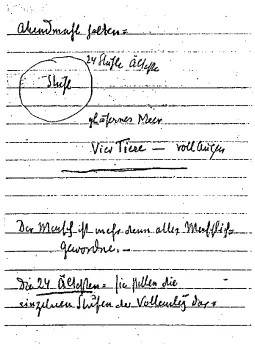 Abendmahl halten =
24 Stühle Älteste
Stuhl
gläsernes Meer
Vier Tiere — voll Augen
Der Mensch ist mehr denn alles Menschlich-
Gewordne. –
Die 24 Ältesten = sie stellen die
einzelnen Stufen der Vollendg dar =